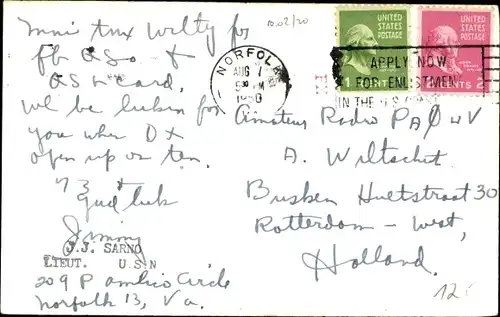 Mni tnx Wilty for
fb QSO &
QSL card,
wl be lukin for
you when DX
open up on ten.
73 &
gud luk
Jimmy
J.J. SARNO
LIEUT. U S N
209 Pamlico Circle
Norfolk 13, Va.
10.02/20
NORFOLK
AUG 1
530 PM
1950
UNITED
STATES
POSTAGE
1 CENT
UNITED
STATES
POSTAGE
CENTS 2
APPLY NOW
FOR ENLISTMEN
IN THE U.S. COAST
Amateur Radio PAØWV
A. Wiltschut
Busken Huetstraat 30
Rotterdam - West,
Holland.